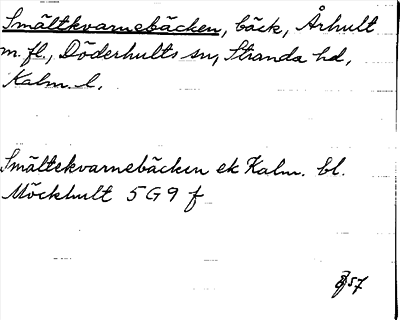 Smältkvarnebäcken, bäck, Århult
m. fl., Döderhults sn, Stranda hd,
Kalm. l.
Smältekvarnebäcken ek Kalm. bl.
Möckhult 5 G 9 f
57